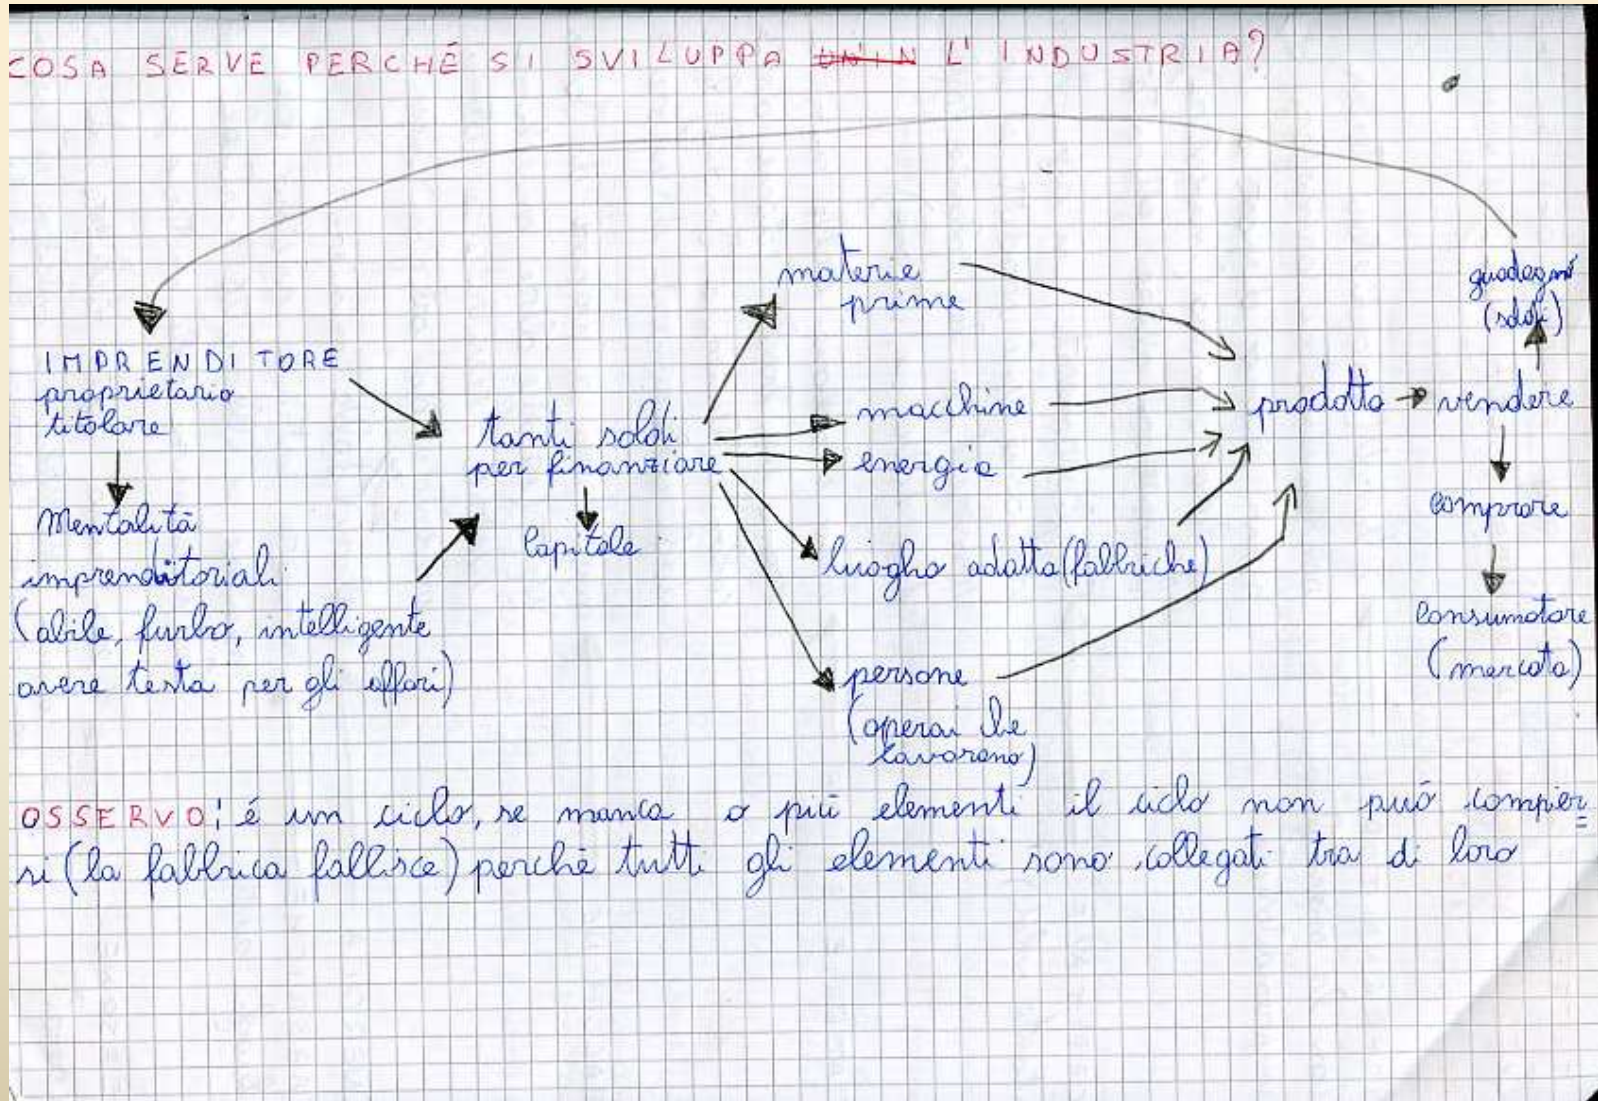 COSA SERVE PERCHÉ SI SVILUPPA UN'IN L'INDUSTRIA?
IMPRENDITORE
proprietario
titolare
Mentalità
imprenditoriali
(abile, furbo, intelligente
avere testa per gli affari)
tanti soldi
per finanziare
Capitale
materie
prime
macchine
energia
luogho adatta (fabbriche)
persone
(operai che
lavorano)
prodotto
vendere
guadagni
(soldi)
comprare
consumatore
(mercato)
OSSERVO: é un ciclo, se manca o più elementi il ciclo non può compier=
si (la fabbrica fallisce) perchè tutti gli elementi sono collegati tra di loro